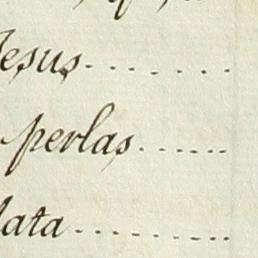 Jesus........
perlas......
lata.........